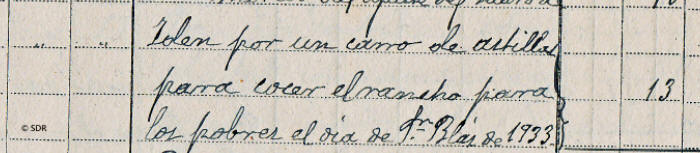 " " Iden por un carro de astillas
para cocer el rancho para 13
los pobres el dia de Sn Blas de 1933.
© SDR